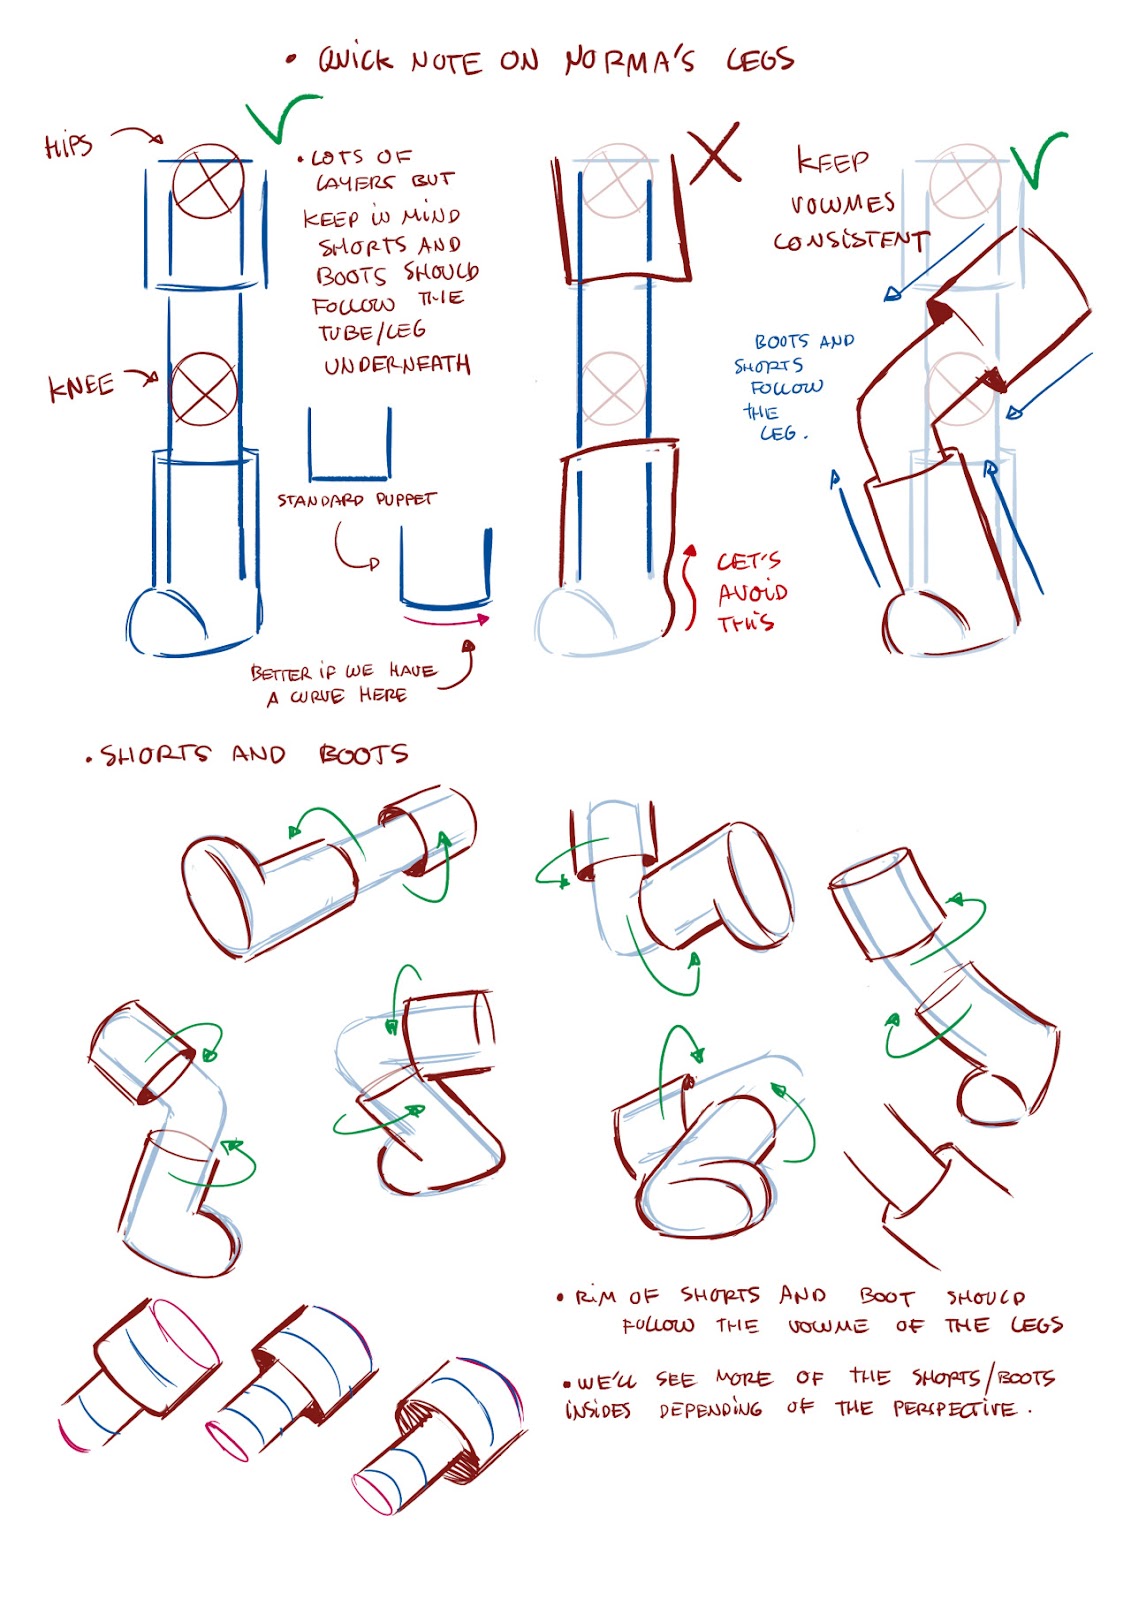 • QUICK NOTE ON NORMA'S LEGS
HIPS
• LOTS OF
LAYERS BUT
KEEP IN MIND
SHORTS AND
BOOTS SHOULD
FOLLOW THE
TUBE/LEG
UNDERNEATH
KNEE
STANDARD PUPPET
BETTER IF WE HAVE
A CURVE HERE
LET'S
AVOID
THIS
KEEP
VOLUMES
CONSISTENT
BOOTS AND
SHORTS
FOLLOW
THE
LEG.
• SHORTS AND BOOTS
• RIM OF SHORTS AND BOOT SHOULD
FOLLOW THE VOLUME OF THE LEGS
• WE'LL SEE MORE OF THE SHORTS/BOOTS
INSIDES DEPENDING OF THE PERSPECTIVE.